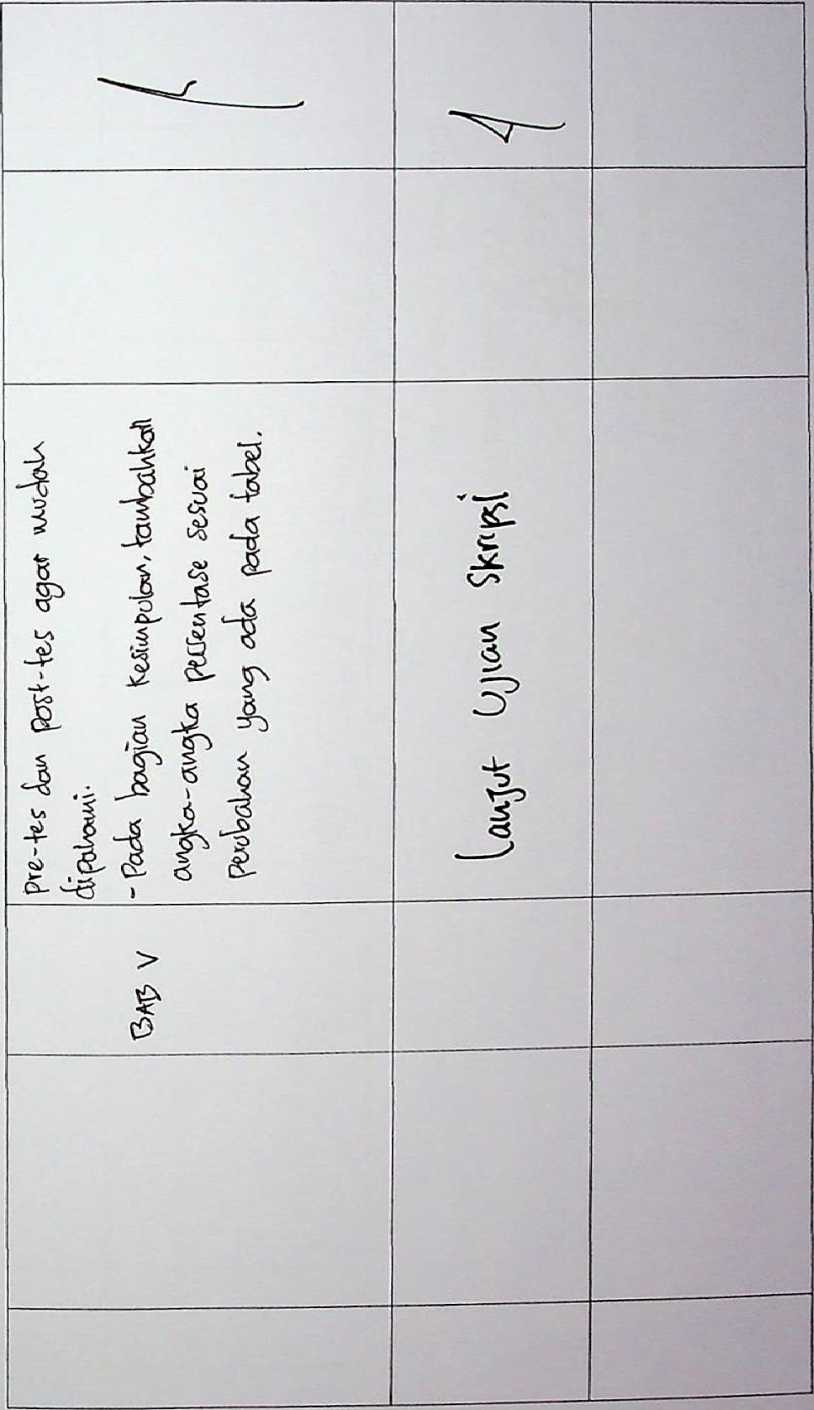 pre-tes dan post-tes agar mudah
dipahami.
BAB V
- Pada bagian kesimpulan, tambahkan
angka-angka persentase sesuai
perubahan yang ada pada tabel.
Lanjut Ujian Skripsi